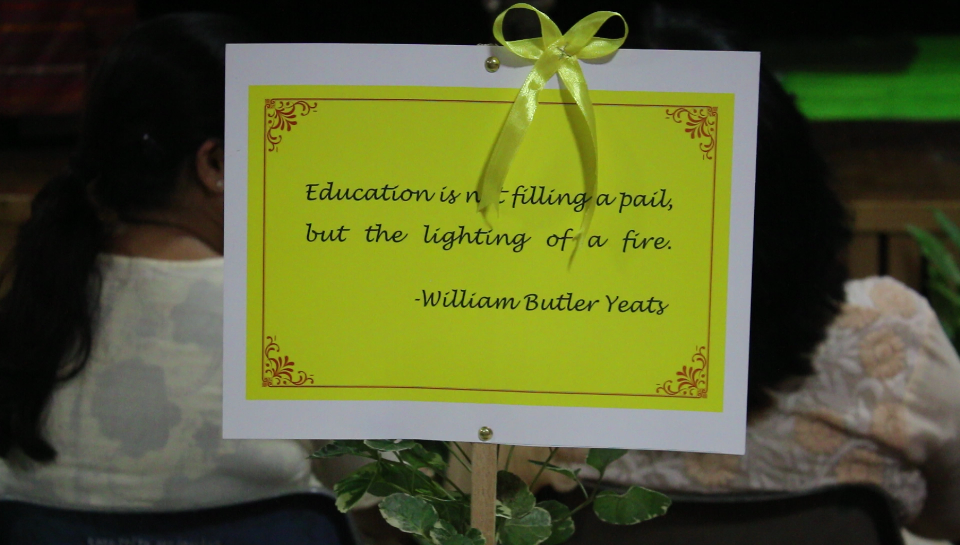 Education is not filling a pail,
but the lighting of a fire.
-William Butler Yeats